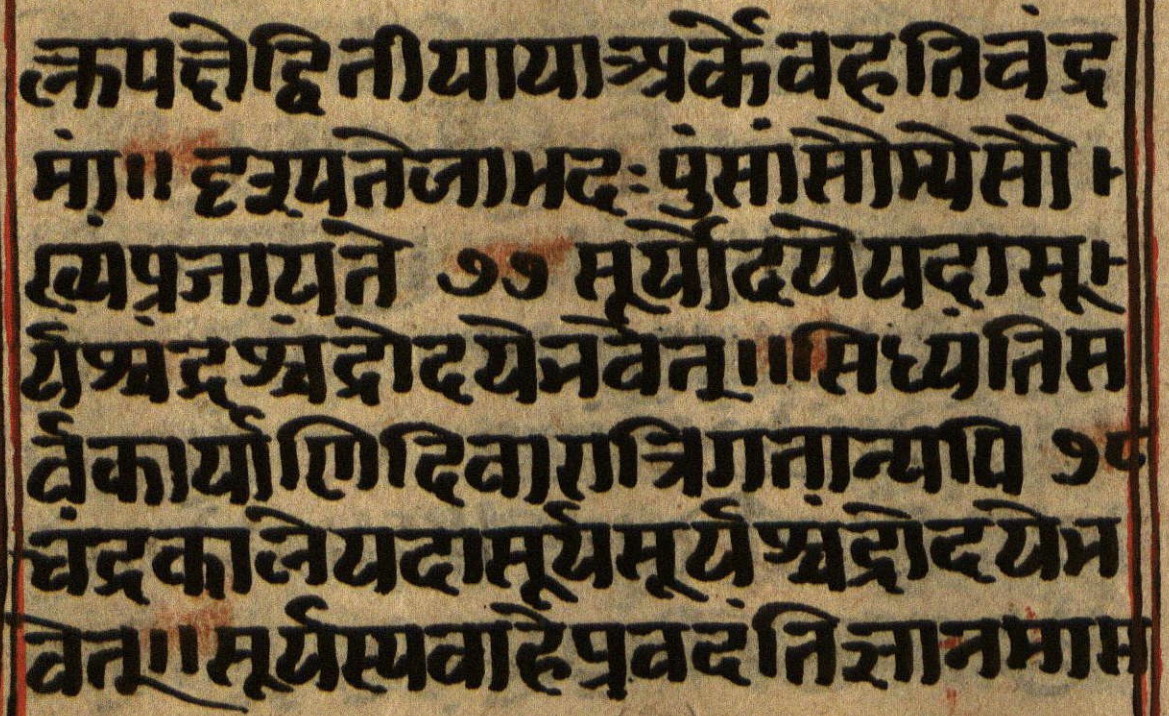 क्लपक्षेद्वितीयायाअर्केवहतिचंद्र
मां॥ दृश्यतेलाभदः पुंसांसौम्येसौ
ख्यंप्रजायते ७७ सूर्योदयेयदासू
र्यश्चंद्रश्चंद्रोदयेभवेत्॥॥सिध्यंतिस
र्वकार्याणिदिवारात्रिगतान्यपि ७८
चंद्रकालेयदासूर्यसूर्यश्चंद्रोदयेभ
वेत्॥सूर्यस्यवाहेप्रवदंतिज्ञानमास